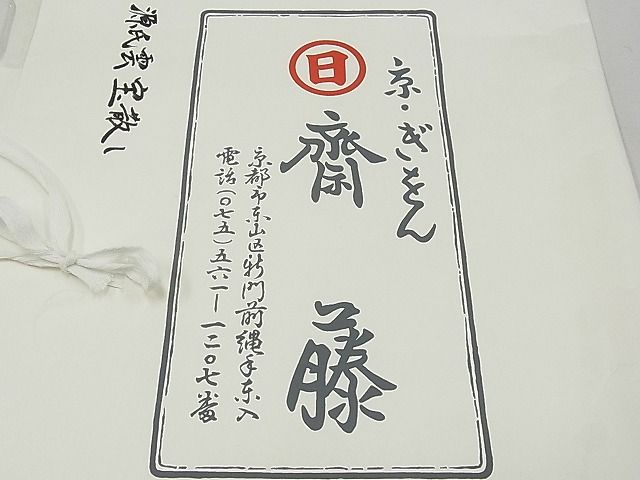 京・ぎをん
日
齋藤
京都市東山区新門前縄手東入
電話(〇七五)五六一一一二〇七番
源氏雲宝散し